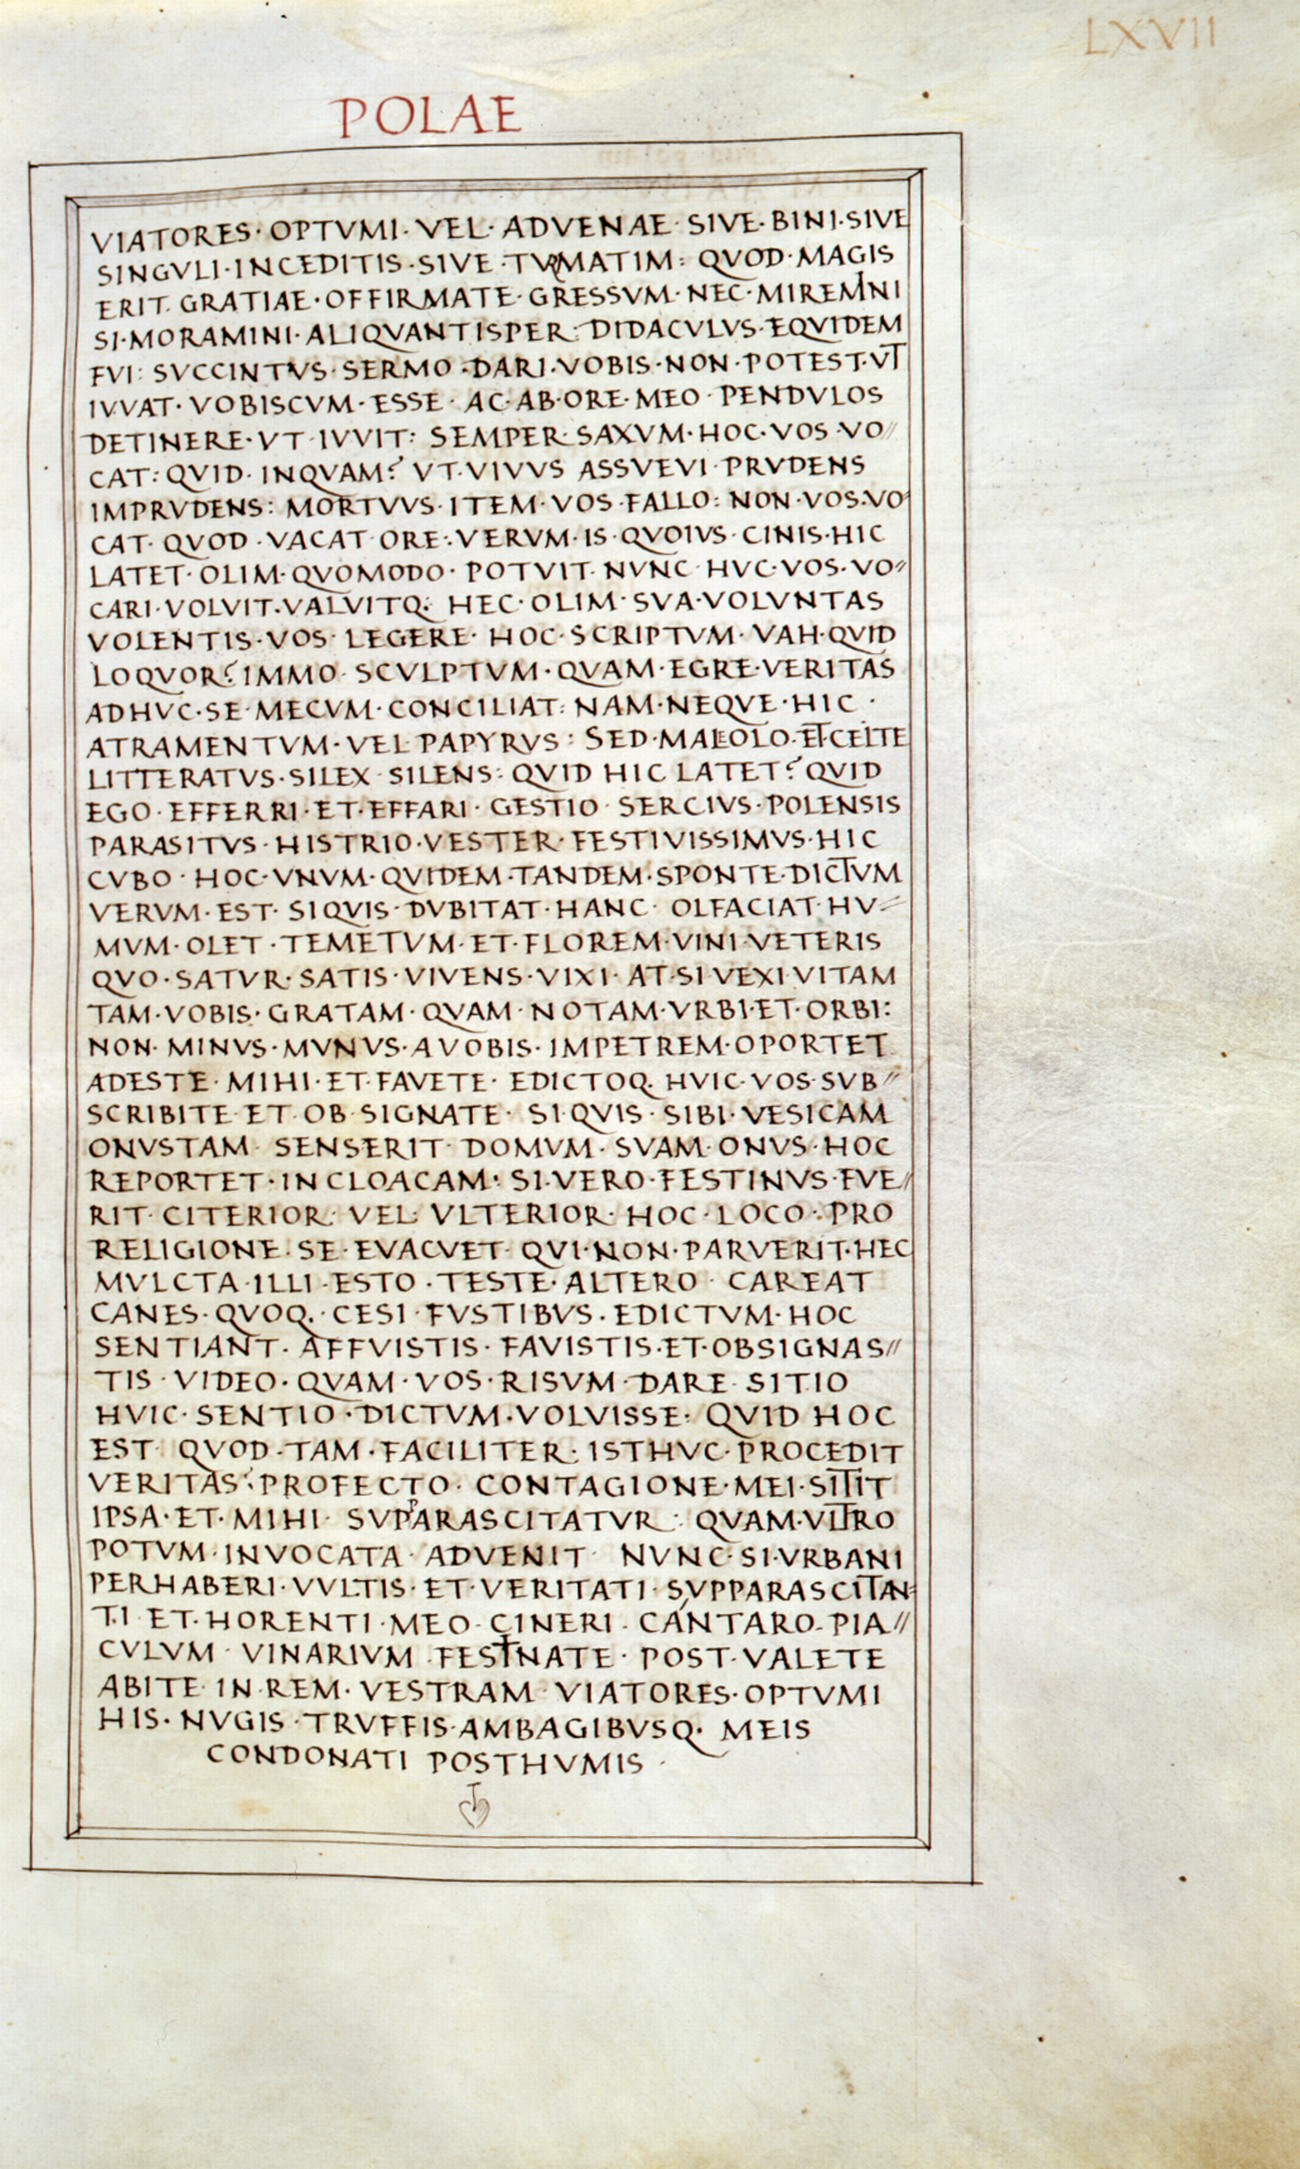 LXVII
POLAE
VIATORES · OPTVMI · VEL · ADVENAE · SIVE · BINI · SIVE
SINGVLI · INCEDITIS · SIVE · TVRMATIM : QVOD · MAGIS
ERIT · GRATIAE · OFFIRMATE · GRESSVM · NEC · MIREMINI
SI · MORAMINI · ALIQVANTISPER : DIDACVLVS · EQVIDEM
FVI : SVCCINTVS · SERMO · DARI · VOBIS · NON · POTEST · VT
IVVAT · VOBISCVM · ESSE · AC · AB · ORE · MEO · PENDVLOS
DETINERE · VT · IVVIT : SEMPER · SAXVM · HOC · VOS · VO//
CAT : QVID · INQVAM? VT · VIVVS ASSVEVI · PRVDENS
IMPRVDENS : MORTVVS · ITEM · VOS · FALLO : NON · VOS · VO
CAT · QVOD · VACAT · ORE : VERVM · IS · QVOIVS · CINIS · HIC
LATET · OLIM · QVOMODO · POTVIT · NVNC · HVC · VOS · VO//
CARI · VOLVIT · VALVITQ : HEC · OLIM · SVA · VOLVNTAS
VOLENTIS · VOS · LEGERE · HOC · SCRIPTVM · VAH · QVID
LOQVOR? IMMO · SCVLPTVM · QVAM · EGRE · VERITAS
ADHVC · SE · MECVM · CONCILIAT : NAM · NEQVE · HIC ·
ATRAMENTVM · VEL PAPYRVS : SED · MALEOLO · ET CELTE
LITTERATVS · SILEX · SILENS : QVID HIC LATET? QVID
EGO · EFFERRI · ET · EFFARI · GESTIO · SERCIVS · POLENSIS
PARASITVS · HISTRIO · VESTER · FESTIVISSIMVS · HIC
CVBO · HOC · VNVM · QVIDEM · TANDEM · SPONTE · DICTVM
VERVM · EST · SIQVIS · DVBITAT · HANC · OLFACIAT · HV//
MVM · OLET · TEMETVM · ET · FLOREM · VINI · VETERIS
QVO · SATVR · SATIS · VIVENS · VIXI · AT · SI VEXI VITAM
TAM · VOBIS · GRATAM · QVAM · NOTAM · VRBI · ET · ORBI :
NON · MINVS · MVNVS · A VOBIS · IMPETREM · OPORTET
ADESTE · MIHI · ET · FAVETE · EDICTOQ · HVIC · VOS · SVB//
SCRIBITE · ET · OB · SIGNATE · SI QVIS · SIBI · VESICAM
ONVSTAM · SENSERIT · DOMVM · SVAM · ONVS · HOC
REPORTET · IN CLOACAM : SI · VERO · FESTINVS · FVE//
RIT · CITERIOR · VEL · VLTERIOR · HOC · LOCO · PRO
RELIGIONE · SE · EVACVET · QVI · NON · PARVERIT · HEC
MVLCTA · ILLI · ESTO · TESTE · ALTERO · CAREAT
CANES · QVOQ · CESI · FVSTIBVS · EDICTVM · HOC
SENTIANT · AFFVISTIS · FAVISTIS · ET · OBSIGNAS//
TIS · VIDEO · QVAM · VOS · RISVM · DARE · SITIO
HVIC · SENTIO · DICTVM · VOLVISSE : QVID HOC
EST · QVOD · TAM · FACILITER : ISTHVC · PROCEDIT
VERITAS? PROFECTO · CONTAGIONE · MEI · SITIT
IPSA · ET · MIHI · SVPPARASCITATVR : QVAM · VLTRO
POTVM · INVOCATA · ADVENIT · NVNC · SI · VRBANI
PERHABERI · VVLTIS · ET · VERITATI · SVPPARASCITAN
TI · ET · HORENTI · MEO · CINERI · CANTARO · PIA//
CVLVM · VINARIVM · FESTINATE · POST · VALETE
ABITE · IN · REM · VESTRAM · VIATORES · OPTVMI
HIS · NVGIS · TRVFFIS · AMBAGIBVSQ · MEIS
CONDONATI POSTHVMIS ·